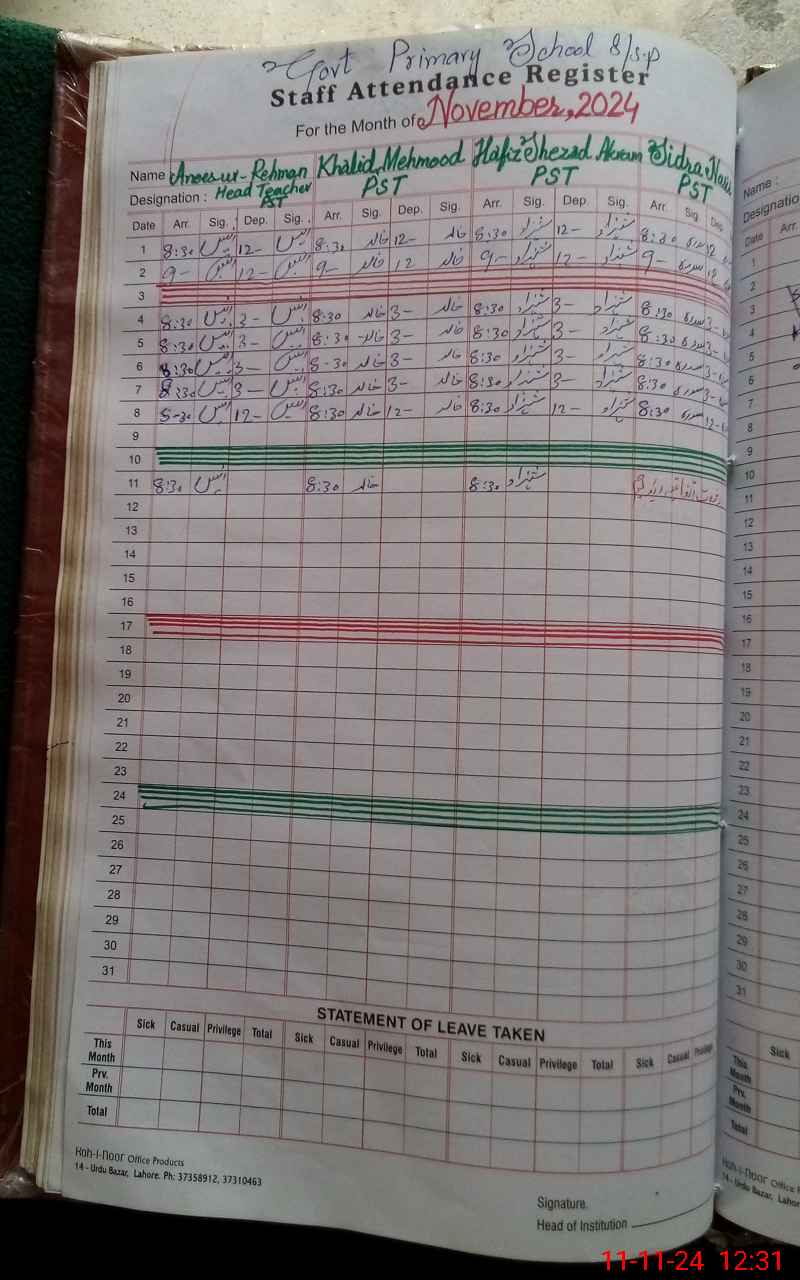 Govt Primary School 8/s.p
Staff Attendance Register
For the Month of November, 2024
Name Anees ur-Rehman Khalid Mehmood Hafiz Shezad Akram Sidra
Designation : Head Teacher PST PST PST PST
Date Arr. Sig. Dep. Sig. Arr. Sig. Dep. Sig. Arr. Sig. Dep. Sig. Arr. Sig. Dep.
1 8:30 انیس 12- انیس 8:30 خالد 12- خالد 8:30 شہزاد 12- شہزاد 8:30 سدرہ 12
2 9- انیس 12- انیس 9- خالد 12 خالد 9- شہزاد 12- شہزاد 9- سدرہ 12
3
4 8:30 انیس 3- انیس 8:30 خالد 3- خالد 8:30 شہزاد 3- شہزاد 8:30 سدرہ 3-
5 8:30 انیس 3- انیس 8:30 خالد 3- خالد 8:30 شہزاد 3- شہزاد 8:30 سدرہ 3-
6 8:30 انیس 3- انیس 8-30 خالد 3- خالد 8:30 شہزاد 3- شہزاد 8:30 سدرہ 3-
7 8:30 انیس 3- انیس 8:30 خالد 3- خالد 8:30 شہزاد 3- شہزاد 8:30 سدرہ 3-
8 8-30 انیس 12- انیس 8:30 خالد 12- خالد 8:30 شہزاد 12- شہزاد 8:30 سدرہ 12-
9
10
11 8:30 انیس 8:30 خالد 8:30 شہزاد رخصت اتفاقیہ
12
13
14
15
16
17
18
19
20
21
22
23
24
25
26
27
28
29
30
31
STATEMENT OF LEAVE TAKEN
Sick Casual Privilege Total Sick Casual Privilege Total Sick Casual Privilege Total Sick Casual Privilege
This Month
Prv. Month
Total
Koh-I-Noor Office Products
14 - Urdu Bazar, Lahore. Ph: 37358912, 37310463
Signature.
Head of Institution
Name :
Designatio
Date Arr.
1
2
3
4
5
6
7
8
9
10
11
12
13
14
15
16
17
18
19
20
21
22
23
24
25
26
27
28
29
30
31
Sick
This Month
Prv. Month
Total
Koh-I-Noor Office
14 - Urdu Bazar, Lahor
11-11-24 12:31